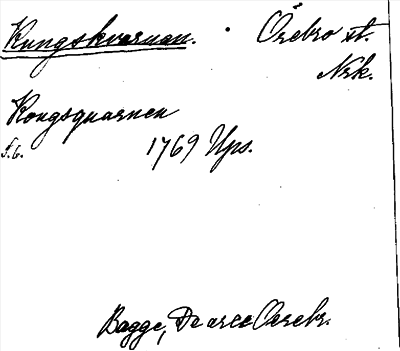 Kungskvarnan. Örebro st.
Nrk.
Kongsquarnen
f.b. 1769 Ups.
Bagge, De arce Oerebr.